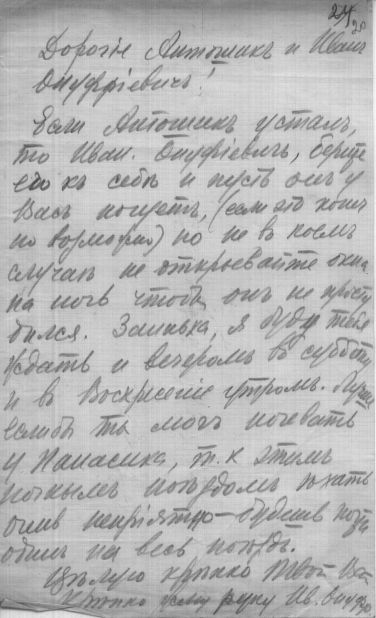 24
28
Дорогіе Антошикъ и Иванъ
Онуфріевичъ!
Если Антошикъ усталъ,
то Иван. Онуфріевичъ, берите
его къ себѣ и пусть онъ у
Васъ ночуетъ, (если это конеч
но возможно) но не въ коемъ
случаѣ не открывайте окна
на ночь чтобъ онъ не просту
дился. Заинька, я буду тебя
ждать и вечеромъ въ субботу
и въ Воскресеніе утромъ. Лучше
еслибъ ты могъ ночевать
у Панасика, т.к этимъ
ночнымъ поѣздомъ ѣхать
очень непріятно - будешь почти
одинъ на весь поѣздъ.
Цѣлую крѣпко Твой
Крѣпко жму руку Ив. Онуфр